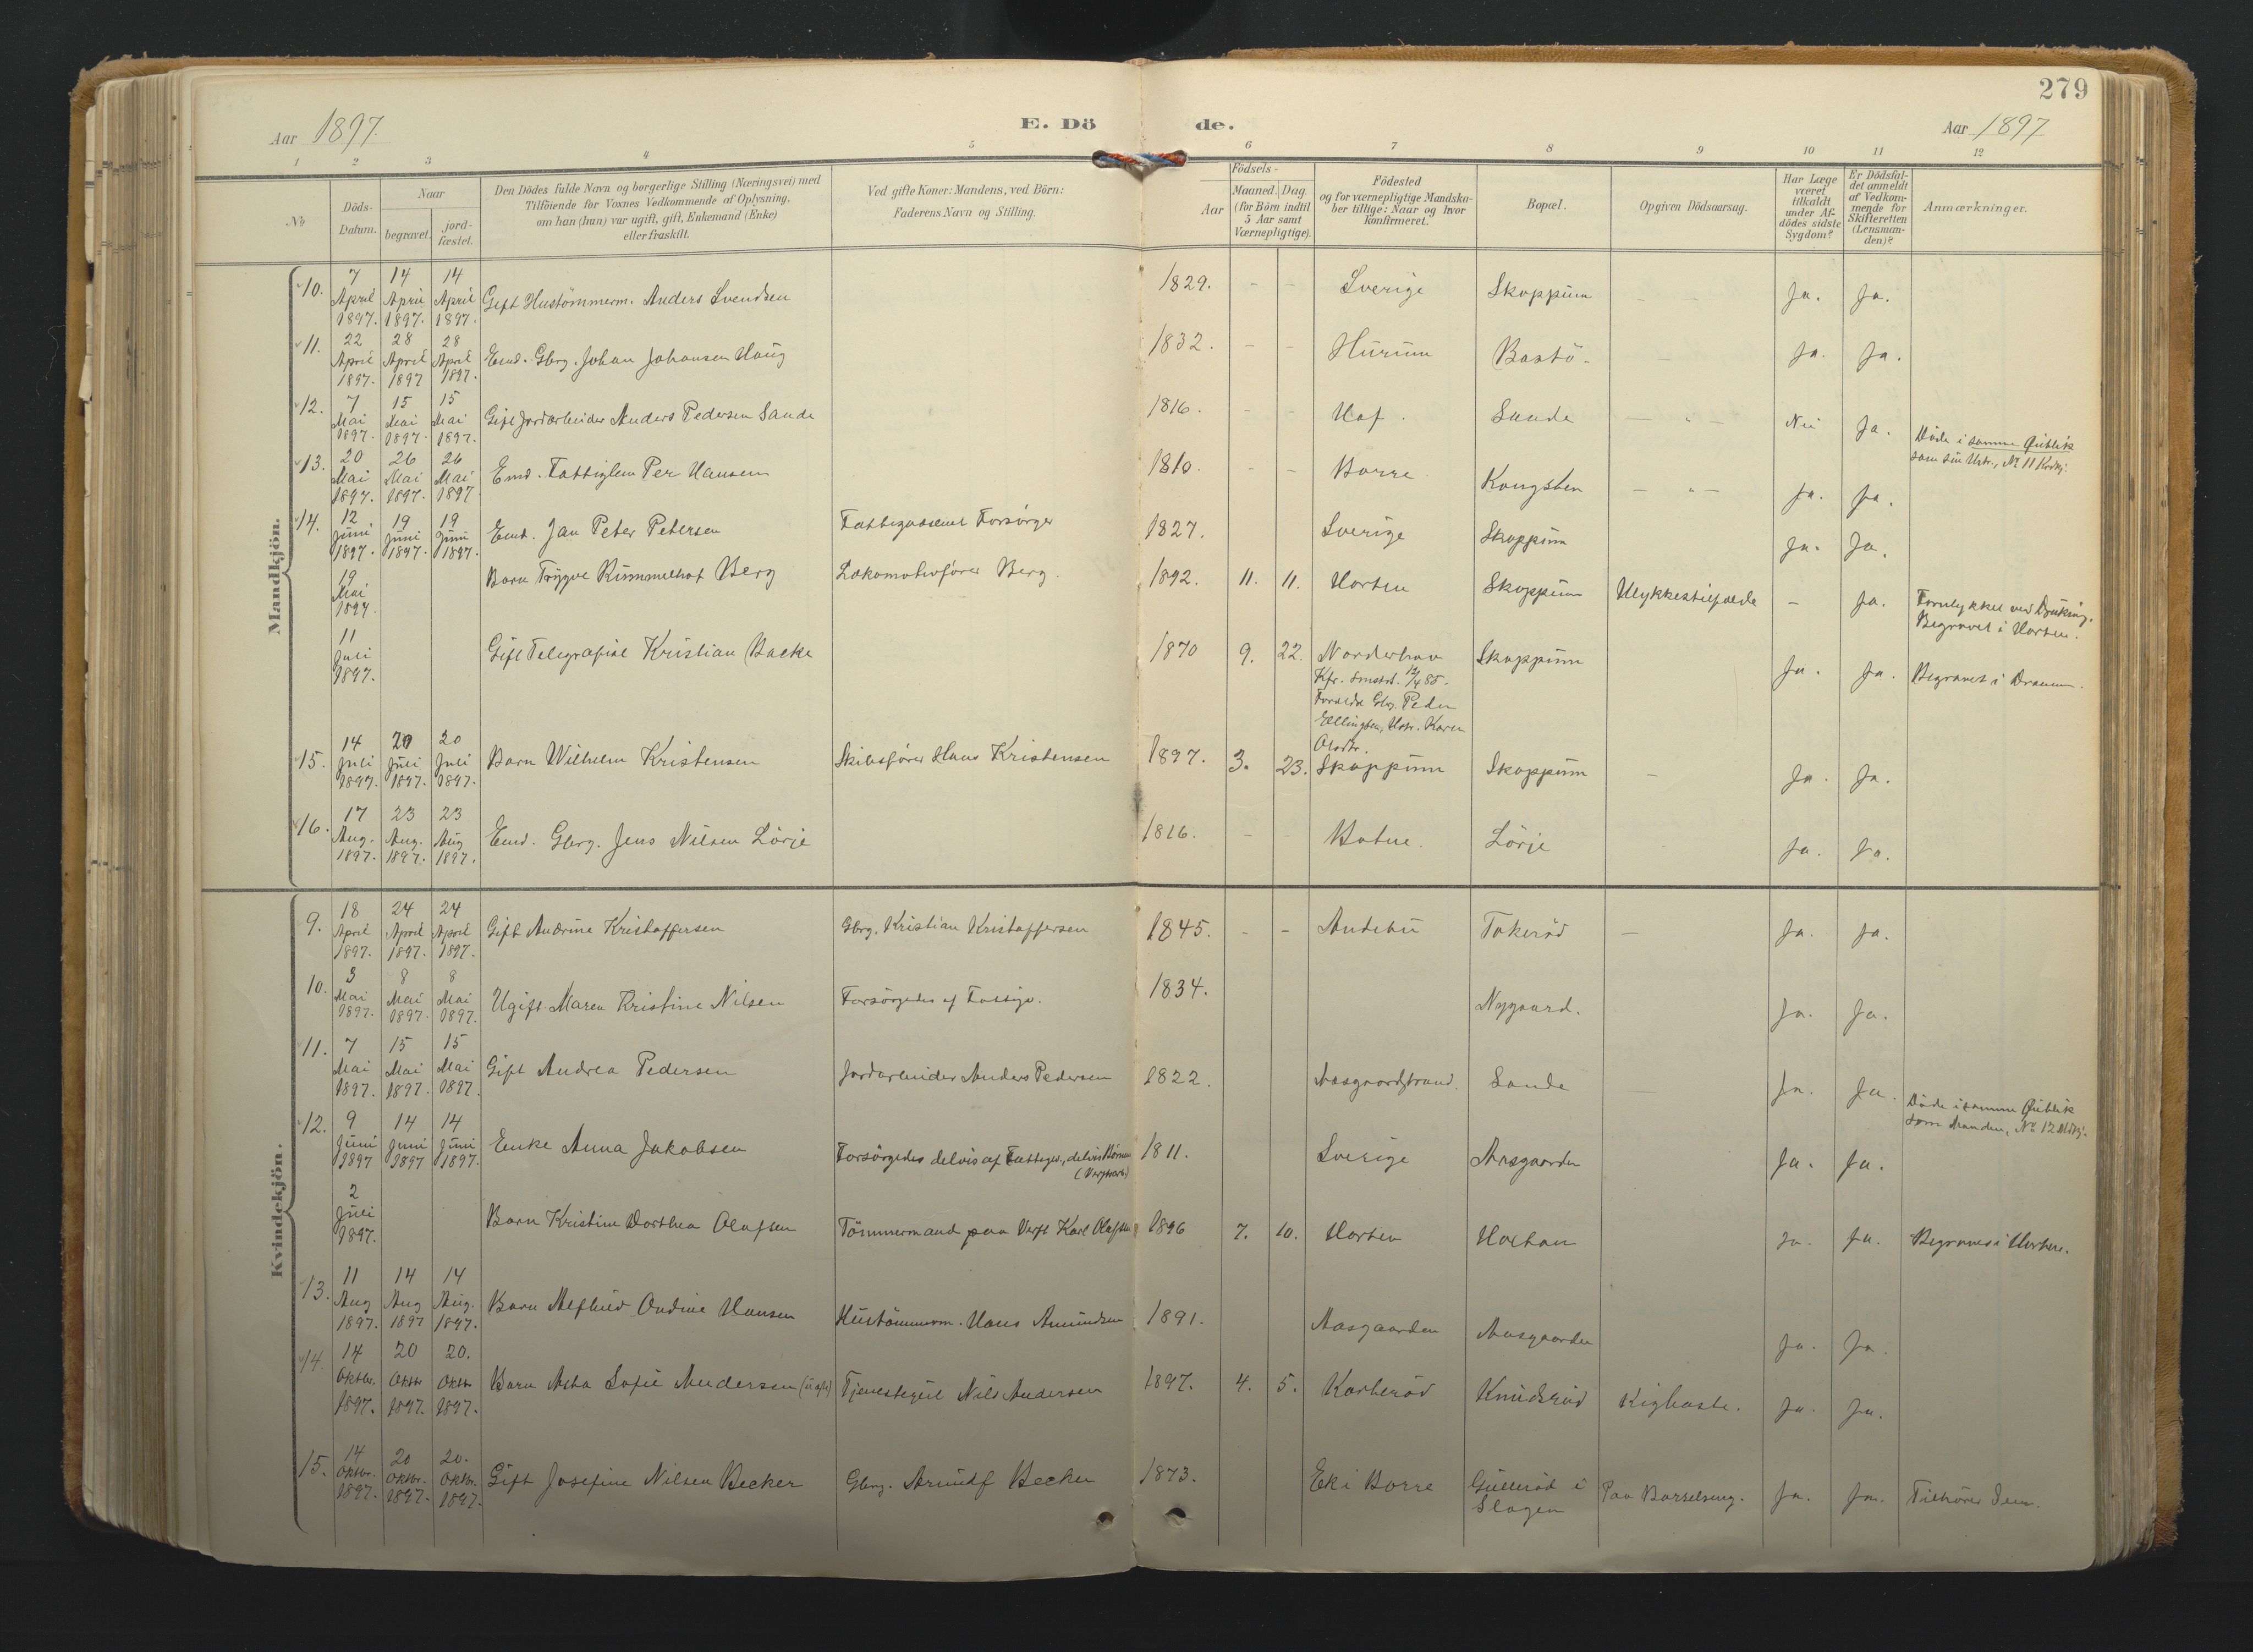 279
Aar 1897.
E. Döde.
Aar 1897
1 2 3 4 5 6 7 8 9 10 11 12
No
Döds-Datum.
Naar
begravet.
jordfæstet.
Den Dödes fulde Navn og borgerlige Stilling (Næringsvei) med
Tilföiende for Voxnes Vedkommende af Oplysning,
om han (hun) var ugift, gift, Enkemand (Enke)
eller fraskilt.
Ved gifte Koner: Mandens, ved Börn:
Faderens Navn og Stilling.
Födsels-
Aar
Maaned. Dag.
(for Börn indtil
5 Aar samt
Værnepligtige).
Födested
og for værnepligtige Mandska-
ber tillige: Naar og hvor
konfirmeret.
Bopæl.
Opgiven Dödsaarsag.
Har Læge
været
tilkaldt
under Af-
dödes sidste
Sygdom?
Er Dödsfal-
det anmeldt
af Vedkom-
mende for
Skifteretten
(Lensman-
den)?
Anmærkninger.
Mandkjön.
10. 7 April 1897. 14 April 1897. 14 April 1897. Gift Hustömmerm. Anders Svendsen 1829. - - Sverige Skoppum - - Ja. Ja.
11. 22 April 1897. 28 April 1897 28 April 1897. Emd. Gbrg. Johan Johansen Haug 1832. - - Hurum Bastö - Ja. Ja.
12. 7 Mai 1897. 15 Mai 1897. 15 Mai 1897. Gift Jordarbeider Anders Pedersen Sande 1816. - - Hof. Sande - " - Nei Ja. Döde i samme Öieblik
som sin Hstr., No 11 Kvkj.
13. 20 Mai 1897. 26 Mai 1897. 26 Mai 1897 Emd. Fattiglem Per Hansen 1810. - - Borre Kongsten - " - Ja. Ja.
14. 12 Juni 1897. 19 Juni 1897. 19 Juni 1897. Emd. Jan Peter Petersen Fattigvæsenet Forsörger 1827. Sverige Skoppum Ja. Ja.
19 Mai 1897. Barn Trygve Rummelhof Berg Lokomotivförer Berg. 1892. 11. 11. Horten Skoppum Ulykkestilfælde - Ja. Forulykket ved Drukning.
Begravet i Horten.
11 Juli 1897. Gift Telegrafist Kristian Backe 1870 9. 22. Norderhov
Kfr. smstd. 12/4 85.
Forældre Gbrg. Peder
Ellingsen, Hstr. Karen
Olsdtr. Skoppum Ja. Ja. Begravet i Drammen.
15. 14 Juli 1897. 20 Juli 1897. 20 Juli 1897. Barn Wilhelm Kristensen Skibsförer Hans Kristensen 1897. 3. 23. Skoppum Skoppum - Ja. Ja.
16. 17 Aug. 1897. 23 Aug. 1897. 23 Aug 1897. Emd. Gbrg. Jens Nilsen Lörje 1816. - - Botne. Lörje Ja. Ja.
Kvindekjön.
9. 18 April 1897. 24 April 1897. 24 April 1897. Gift Andrine Kristoffersen Gbrg. Kristian Kristoffersen 1845. - - Andebu Tokeröd - Ja. Ja.
10. 3 Mai 1897. 8 Mai 1897. 8 Mai 1897. Ugift Maren Kristine Nilsen Forsörgedes af Fattigv. 1834. Nygaard. Ja. Ja.
11. 7 Mai 1897. 15 Mai 1897. 15 Mai 1897. Gift Andrea Pedersen Jordarbeider Anders Pedersen 1822. Aasgaardstrand. Sande - Ja. Ja. Döde i samme Öieblik
som Manden, No 12 Mdkj.
12. 9 Juni 1897 14 Juni 1897 14 Juni 1897. Enke Anna Jakobsen Forsörgedes delvis af Fattigv., delvis Börnene
1811. Sverige Aasgaarden Ja. Ja.
2 Juli 1897. Barn Kristine Dorthea Olafsen Tömmermand paa Verft Karl Olafsen 1896 7. 10. Horten Holtan Ja. Ja. Begraves i Horten.
13. 11 Aug 1897. 14 Aug 1897 14 Aug. 1897. Barn Alfhild Ondine Hansen Hustömmerm. Hans Amundsen 1891. Aasgaarden Aasgaarden Ja. Ja.
14. 14 Oktbr. 1897. 20 Oktbr 1897. 20. Oktbr 1897. Barn Asta Sofie Andersen (uægte) Tjenestegut Nils Andersen 1897. 4. 5. Korteröd Knudsröd Kighoste. Ja. Ja.
15. 14 Oktbr. 1897. 20 Oktbr. 1897. 20. Oktbr. 1897. Gift Josefine Nilsen Becker Gbrg. Arnulf Becker 1873. Ek i Borre Gulleröd i
Slagen Paa Barselseng. Ja. Ja. Tilhörer Sem.